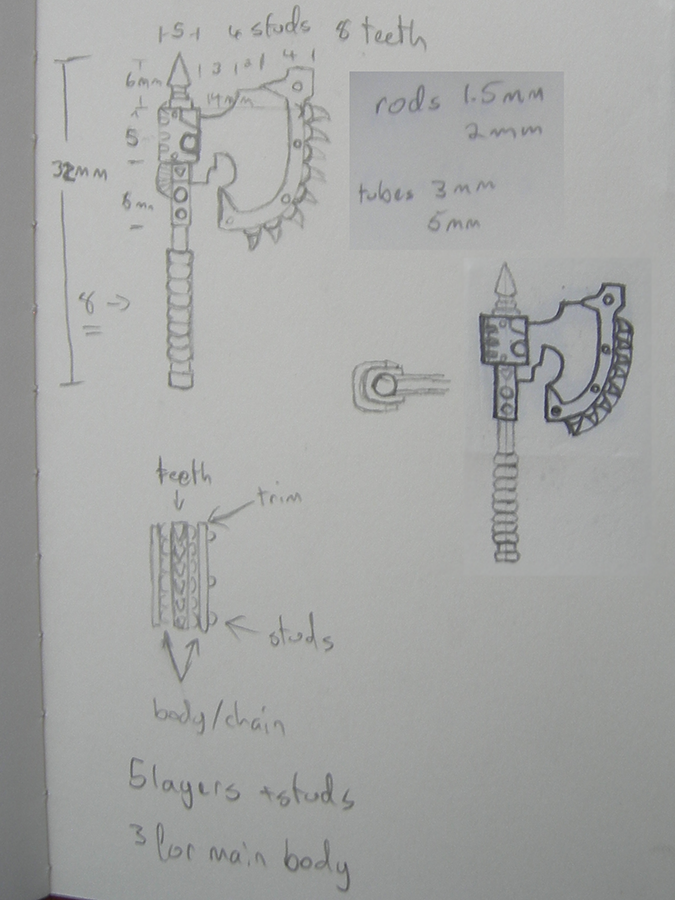 1-5-1 4 studs 8 teeth
1 3 1 2 1 4 1
6mm
14mm
5
32mm
8 →
rods 1.5mm
2mm
tubes 3mm
5mm
teeth
trim
studs
body/chain
5 layers + studs
3 for main body